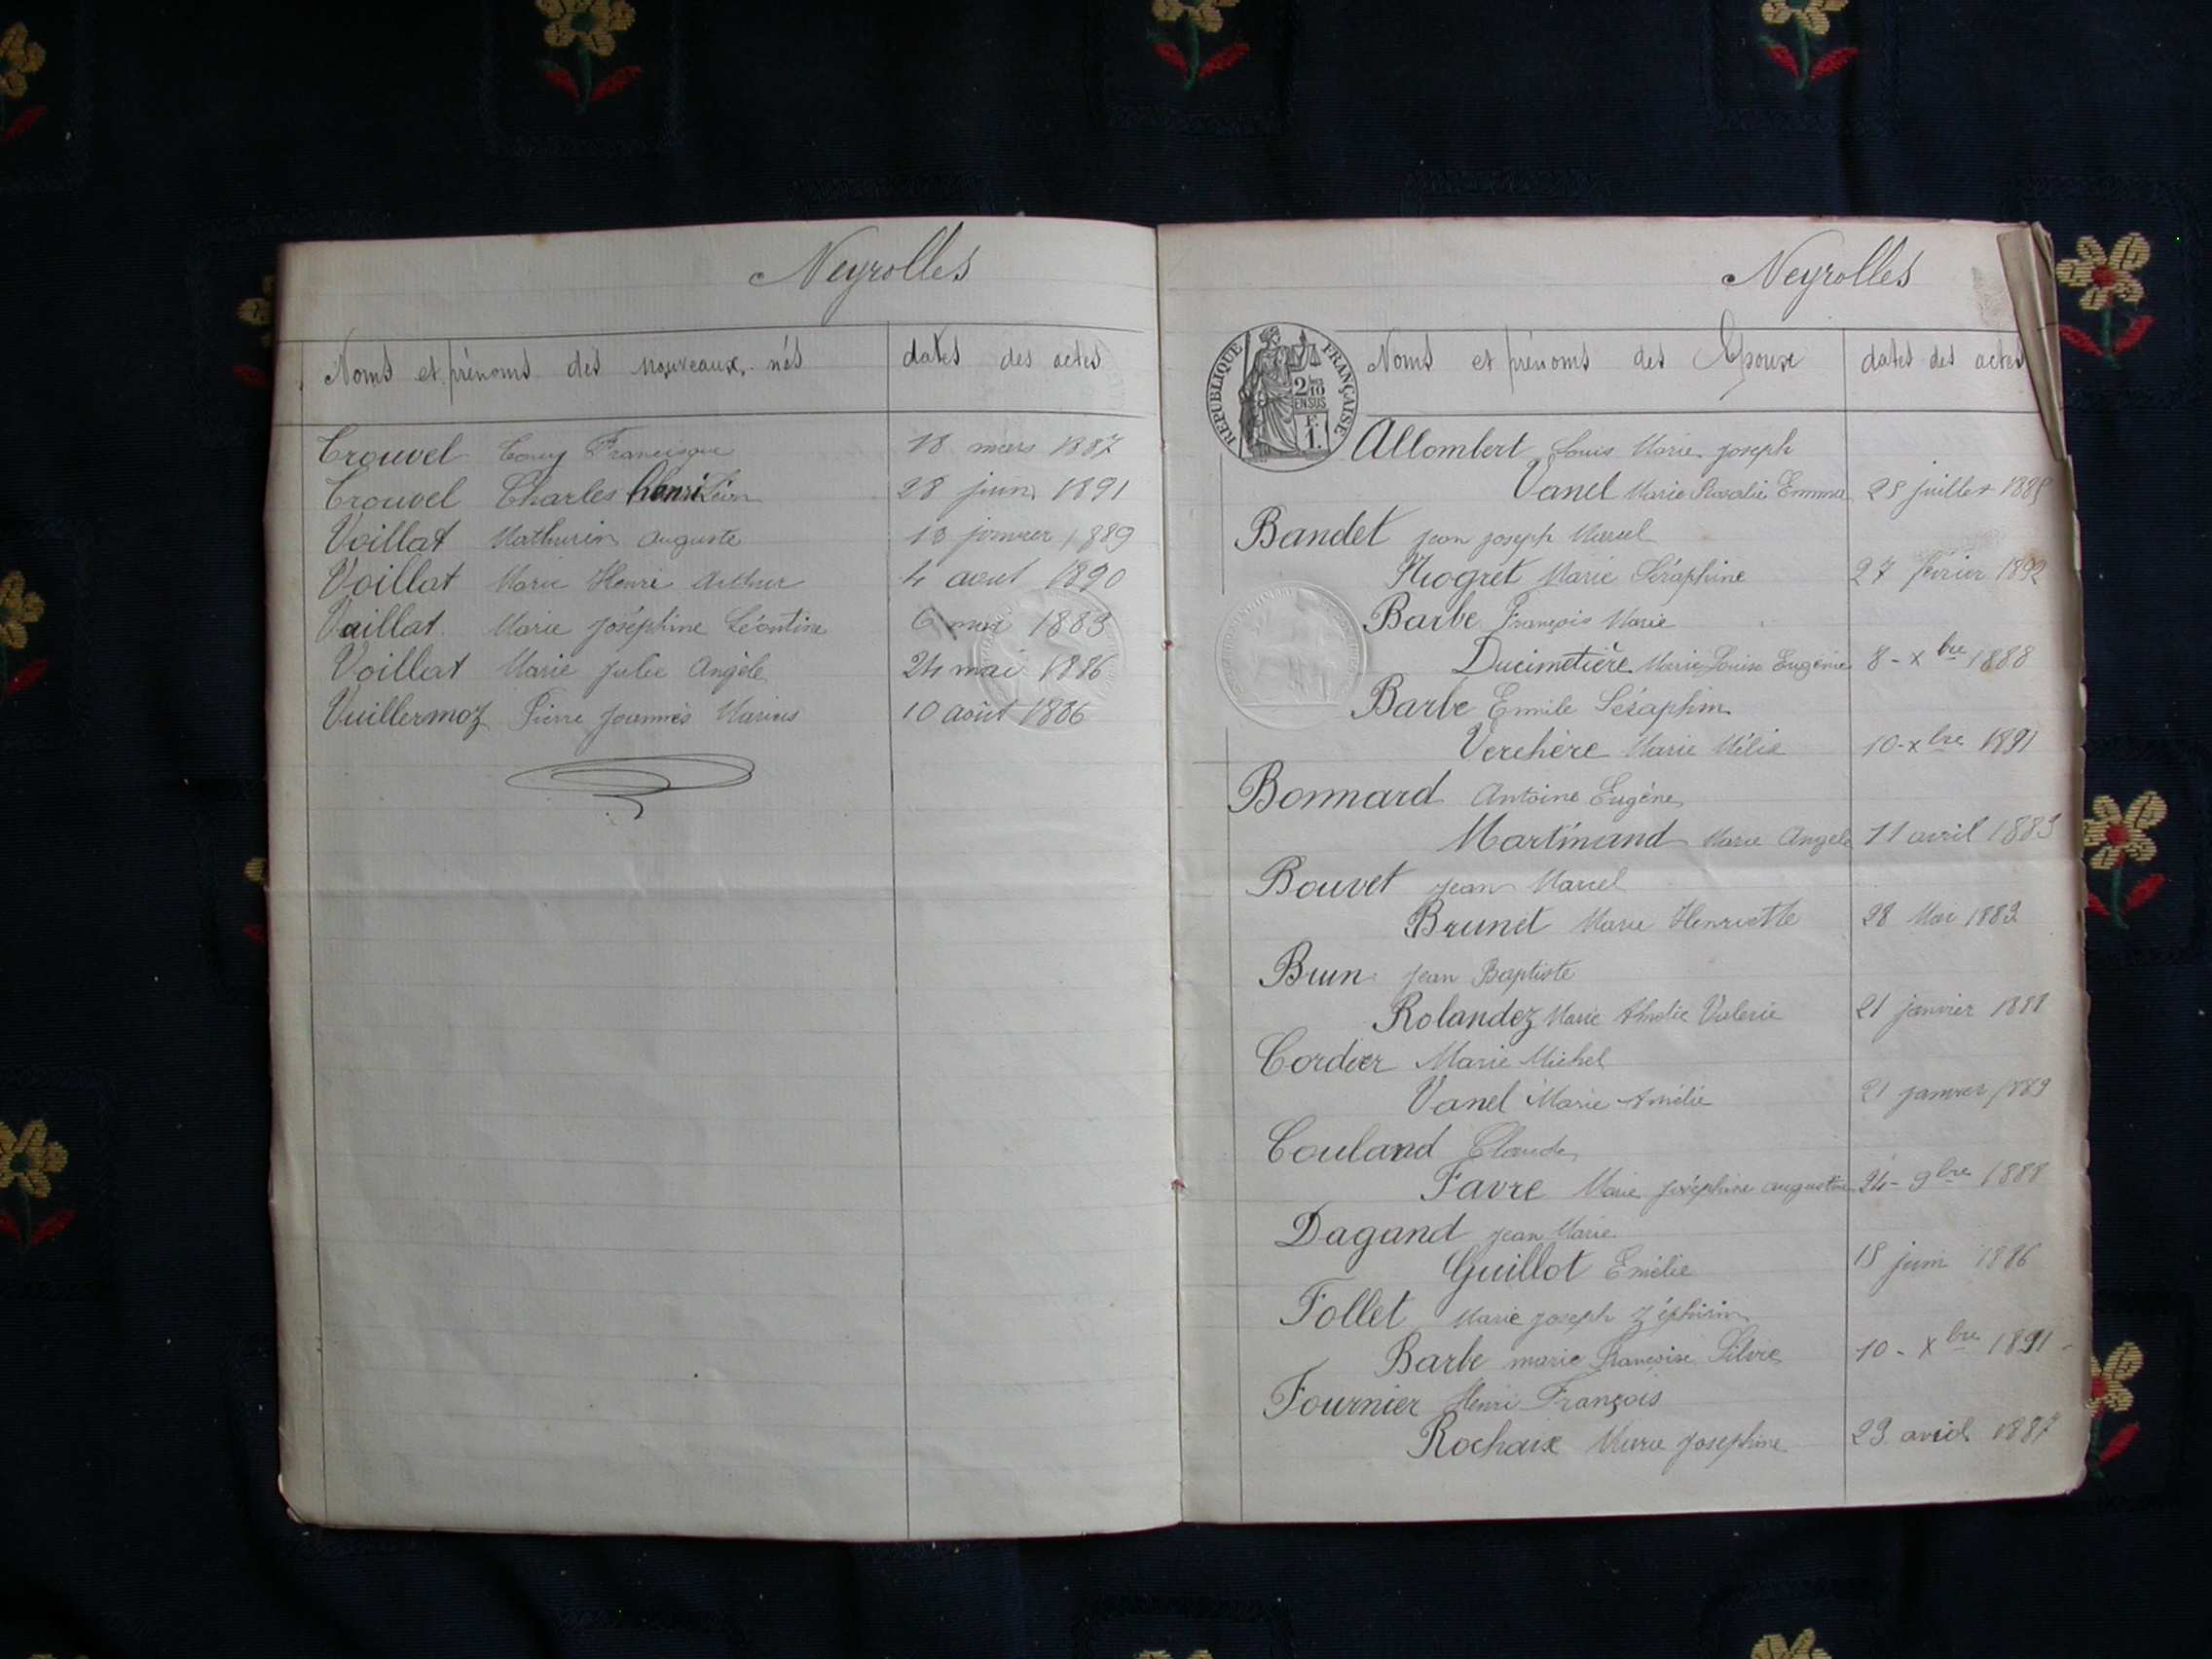 Neyrolles
Noms et prénoms des nouveaux-nés dates des actes
Trouvel Francisque 18 mars 1887
Trouvel Charles henri Léon 28 juin 1891
Voillat Mathurin Auguste 13 janvier 1889
Voillat Marie Henri Arthur 4 aout 1890
Vaillat Marie Joséphine Léontine 6 mai 1883
Voillat Marie Julie Angèle 24 mai 1886
Vuillermoz Pierre Joannès Marius 10 août 1886
Neyrolles
RÉPUBLIQUE FRANÇAISE
2/10
EN SUS
F.
1.
Noms et prénoms des Epoux dates des actes
Allombert Louis Marie Joseph
Vanel Marie Rosalie Emma 25 juillet
Bandet Jean Joseph Marcel
Mogret Marie Séraphine 27 février 1892
Barbe François Marie
Ducimetière Marie Louise Eugénie 8 - Xbre 1888
Barbe Emile Séraphin
Verchère Marie Mélie 10 - Xbre 1891
Bonnard Antoine Eugène
Martinand Marie Angele 11 avril 1883
Bouvet Jean Marcel
Brunet Marie Henriette 28 Mai 1883
Brun Jean Baptiste
Rolandez Marie Amélie Valerie 21 janvier 1888
Cordier Marie Michel
Vanel Marie Amélie 21 janvier 1889
Couland Claude
Favre Marie Joséphine Augustine 24 - 9bre 1888
Dagand Jean Marie
Guillot Emélie 15 juin 1886
Follet Marie Joseph Zéphirin
Barbe marie Françoise Silvie 10 - Xbre 1891
Fournier Henri François
Rochaix Marie Josephine 23 avril 1887